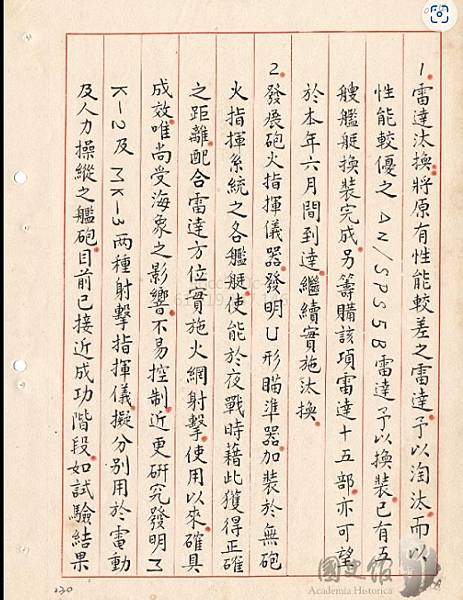 1.雷達汰換將原有性能較差之雷達予以淘汰而以
性能較優之AN/SPS5B雷達予以換裝已有五
艘艦艇換裝完成另籌購該項雷達十五部亦可望
於本年六月間到達繼續實施汰換
2.發展砲火指揮儀器發明U形瞄準器加裝於無砲
火指揮系統之各艦艇使能於夜戰時藉此獲得正確
之距離配合雷達方位實施火網射擊使用以來確具
成效唯尚受海象之影響不易控制近更研究發明M
K-2及MK-3兩種射擊指揮儀擬分別用於電動
及人力操縱之艦砲目前已接近成功階段如試驗結果
130
國史館
Academia Historica